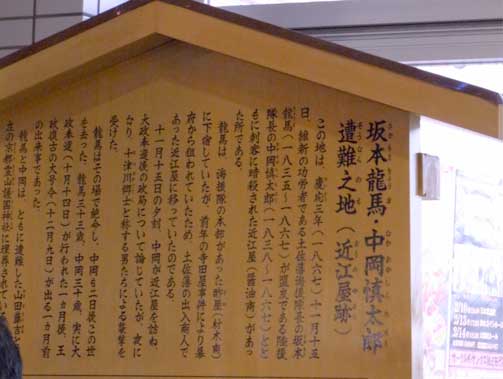 坂本龍馬・中岡慎太郎
遭難之地（近江屋跡）
この地は、慶応三年（一八六七）十一月十五
日、維新の功労者である土佐藩海援隊長の坂本
龍馬（一八三五―一八六七）が盟友である陸援
隊長の中岡慎太郎（一八三八―一八六七）とと
もに刺客に暗殺された近江屋（醤油商）があっ
た所である。
龍馬は、海援隊の本部があった酢屋（材木商）
に下宿していたが、前年の寺田屋事件により幕
府から狙われていたため、土佐藩の出入商人で
あった近江屋に移っていたのである。
十一月十五日の夕刻、中岡が近江屋を訪ね
大政奉還後の政局について論じていたが、夜に
なり、十津川郷士と称する男たちによる襲撃を
受けた。
龍馬はこの場で絶命し、中岡も二日後この世
を去った。龍馬三十三歳、中岡三十歳、実に大
政奉還（十月十四日）が行われた一ヵ月後、王
政復古の大号令（十二月九日）が出る一ヵ月前
の出来事であった。
龍馬と中岡は、ともに遭難した山田藤吉と
左の京都霊山護国神社に埋葬されている
2/10
2/13
2/14